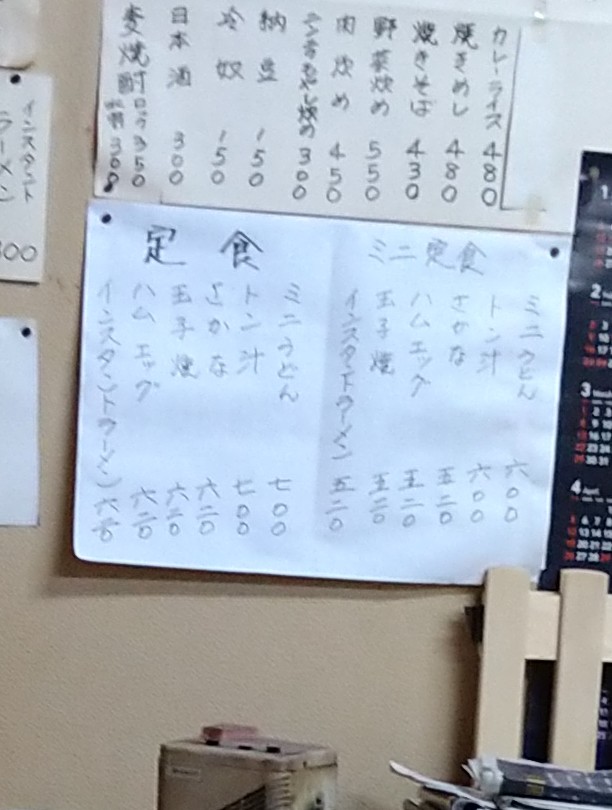 カレーライス 480
焼きめし 480
焼きそば 430
野菜炒め 550
肉炒め 450
300
納豆 150
冷奴 150
日本酒 300
麦焼酎 ロック 350
300
ミニ定食
ミニうどん 六〇〇
トン汁 六〇〇
さかな 五二〇
ハムエッグ 五二〇
玉子焼 五二〇
インスタントラーメン 五二〇
定食
ミニうどん 七〇〇
トン汁 七〇〇
さかな 六二〇
玉子焼 六二〇
ハムエッグ 六二〇
インスタントラーメン 六二〇
インスタント
ラーメン
1
2
3
4 April